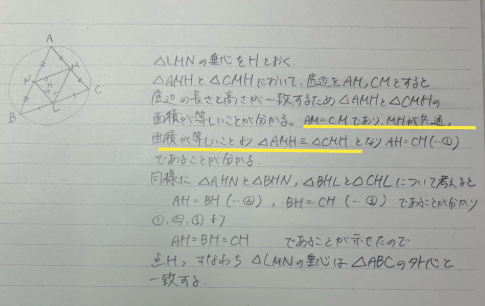 A
N
M
H
B
L
C
△LMNの垂心をHとおく
△AMHと△CMHにおいて、底辺をAM, CMとすると
底辺の長さと高さが一致するため△AMHと△CMHの
面積が等しいことが分かる。AM=CMであり、MHが共通、
面積が等しいことより△AMH≡△CMHとなりAH=CH(…①)
であることが分かる.
同様に△AHNと△BHN, △BHLと△CHLについて考えると
AH=BH(…②), BH=CH(…③)であることが分かり
①,②,③より
AH=BH=CH であることが示せたので
点H, すなわち△LMNの垂心は△ABCの外心と
一致する.